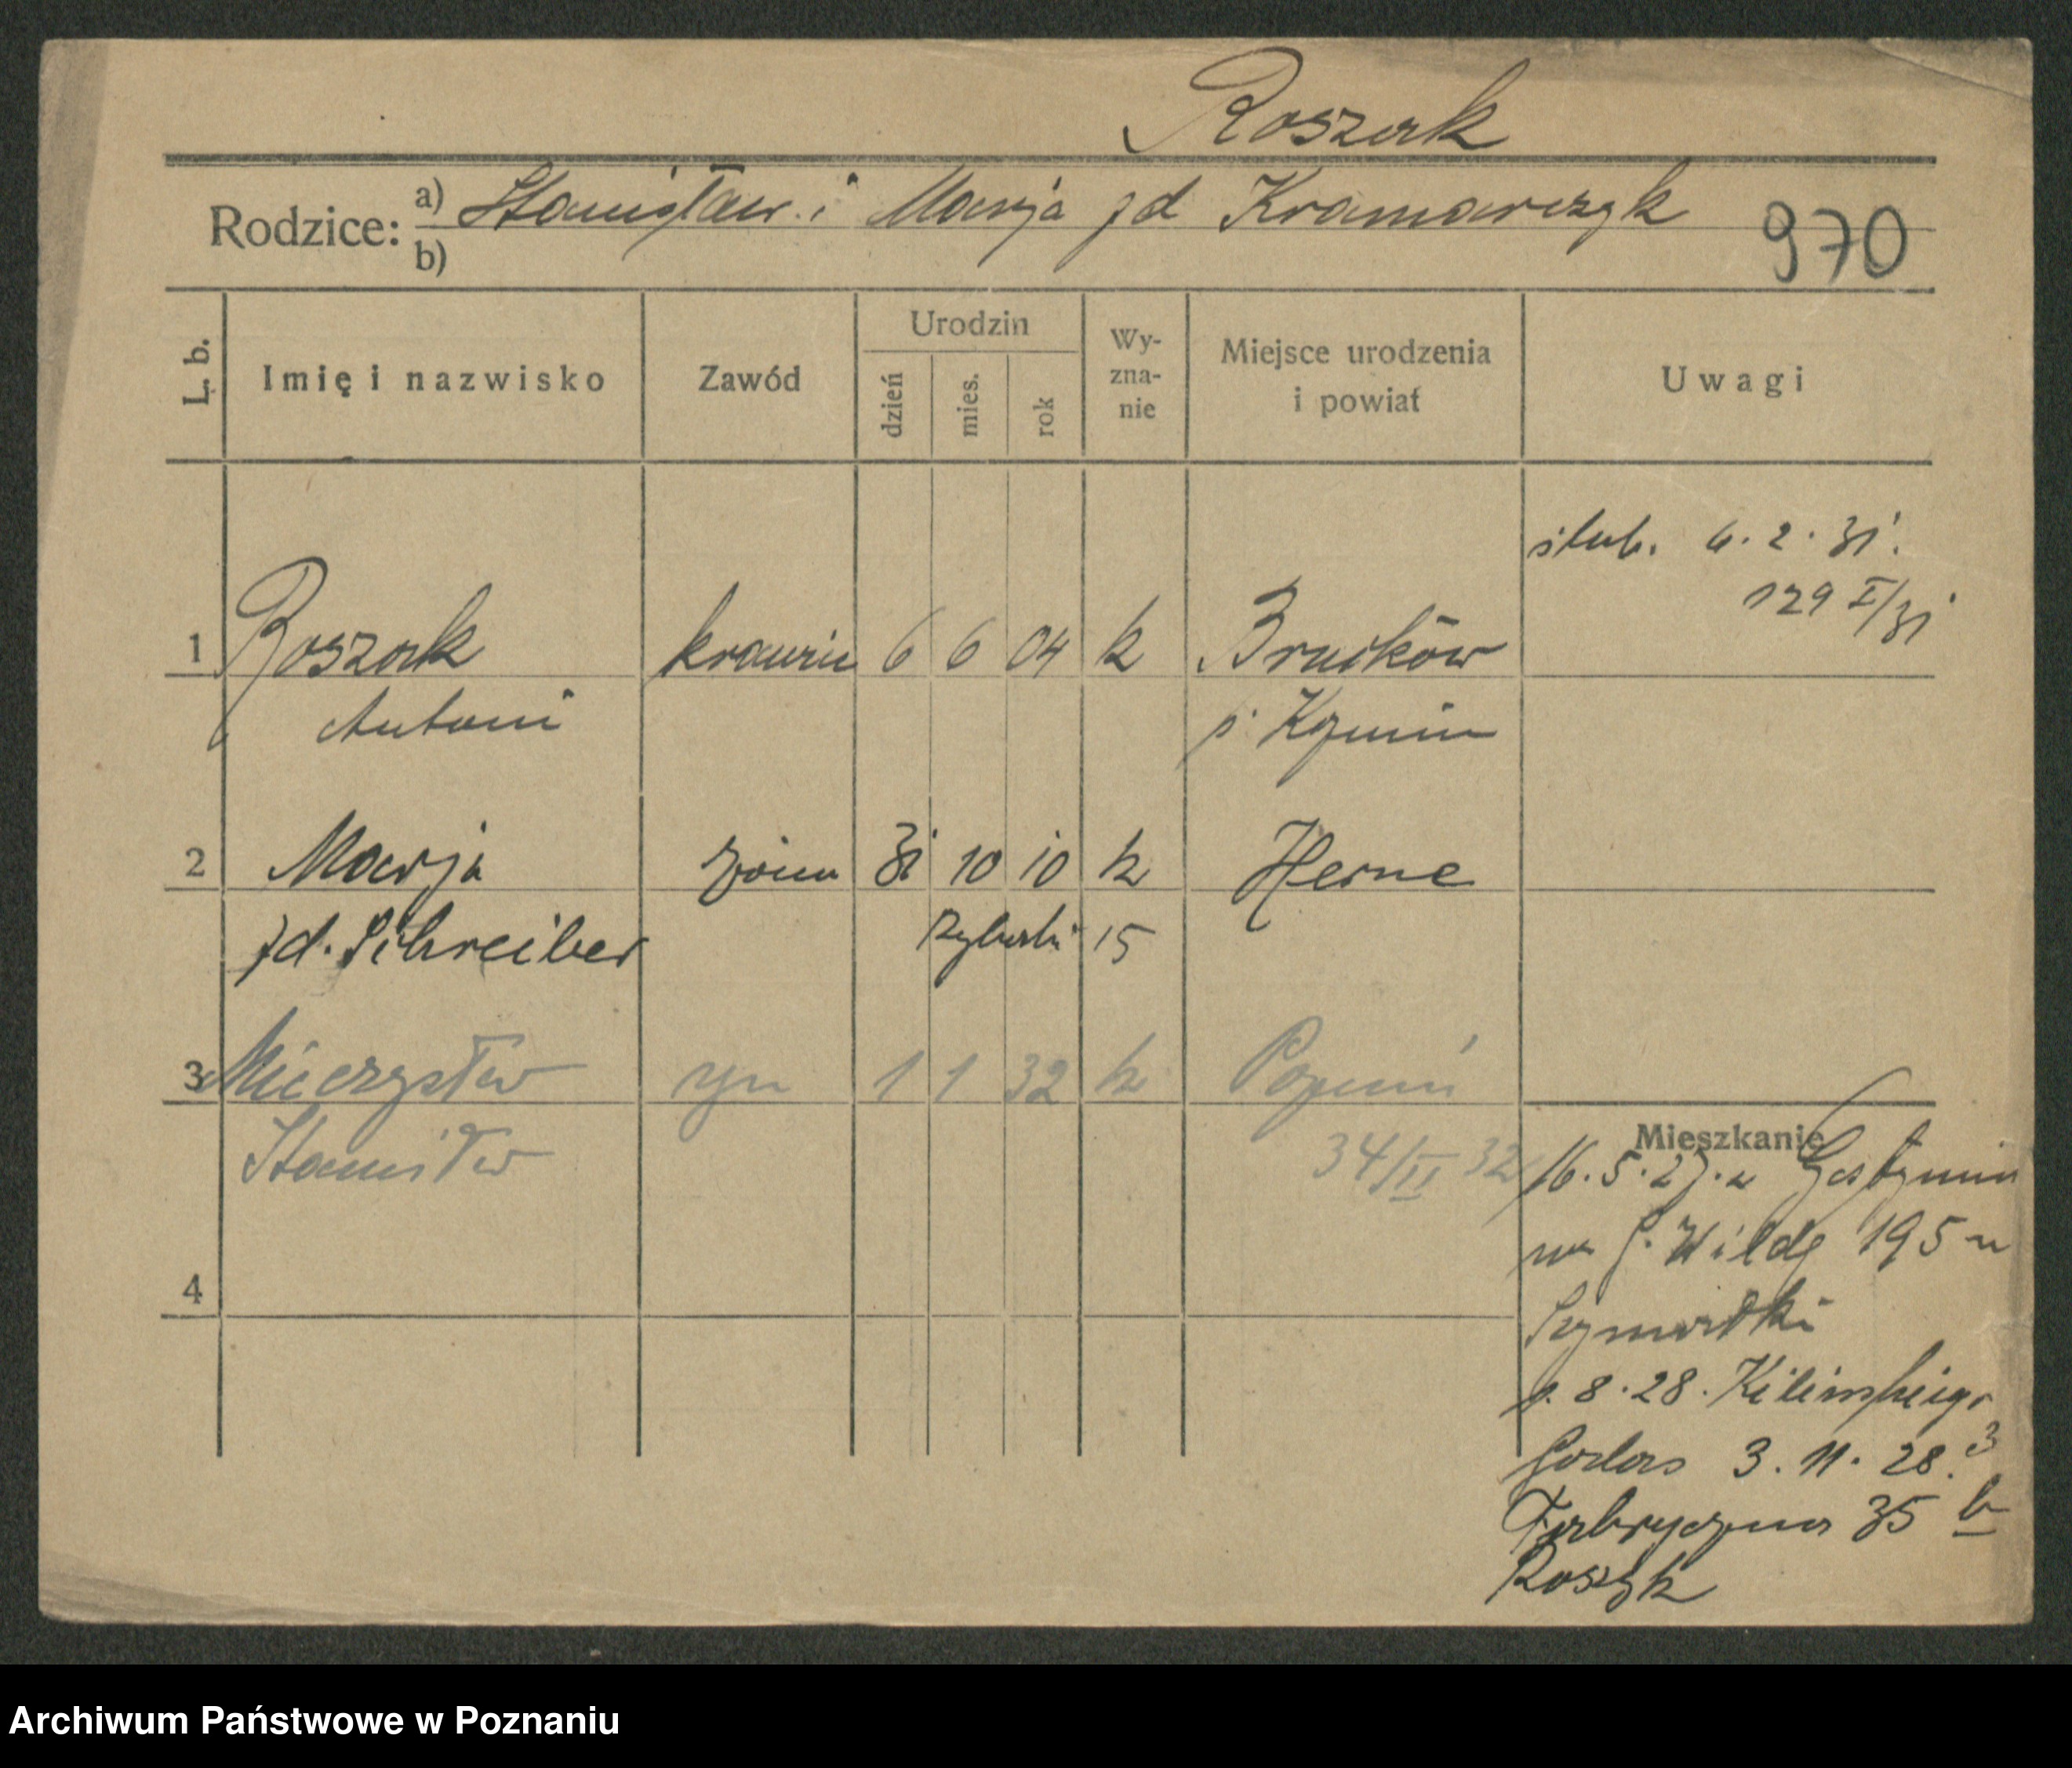 Roszak
Rodzice: a) Stanisław i Marja zd Kramarczyk
b)
970
L. b.
Imię i nazwisko
Zawód
Urodzin
dzień
mies.
rok
Wy-
zna-
nie
Miejsce urodzenia
i powiat
Uwagi
ślub. 6.2.31.
129 I/31
1 Roszak krawiec 6 6 04 k Bruczków
Antoni p. Kozmin
2 Marja żona 31 10 10 k Herne
zd. Schreiber 15
3 Mieczysław syn 1 1 32 k Poznań
Stanisław 34/II 32
Mieszkanie
16.5.27. z Gostynia
na G. Wildę 195 u
4
1.8.28. Kilińskiego
3
3.11.28.
Fabryczna 35 b
Roszyk
Archiwum Państwowe w Poznaniu